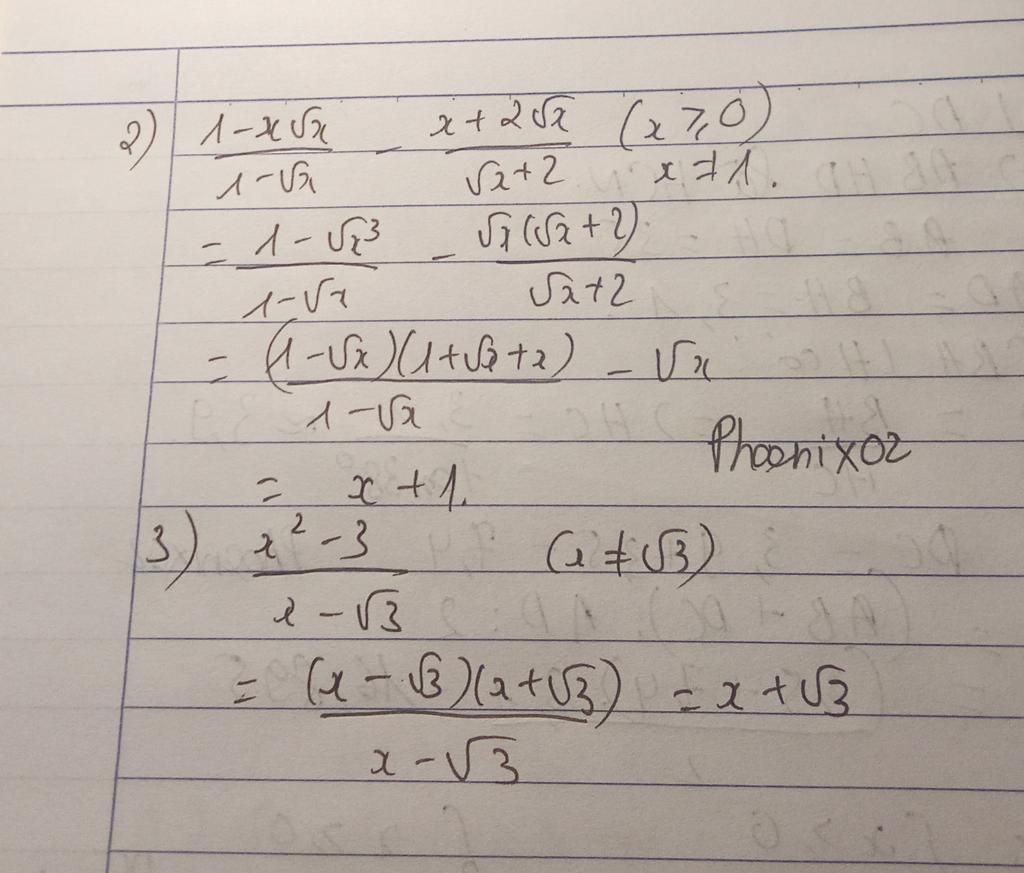 2) (1-x√x)/(1-√x) - (x+2√x)/(√x+2) (x ⩾ 0) x ≠ 1.
= (1-√x³)/(1-√x) - √x(√x+2)/(√x+2)
= (1-√x)(1+√x+x)/(1-√x) - √x
Phoenix02
= x + 1.
3) (x²-3)/(x-√3) (x ≠ √3)
= (x-√3)(x+√3)/(x-√3) = x + √3